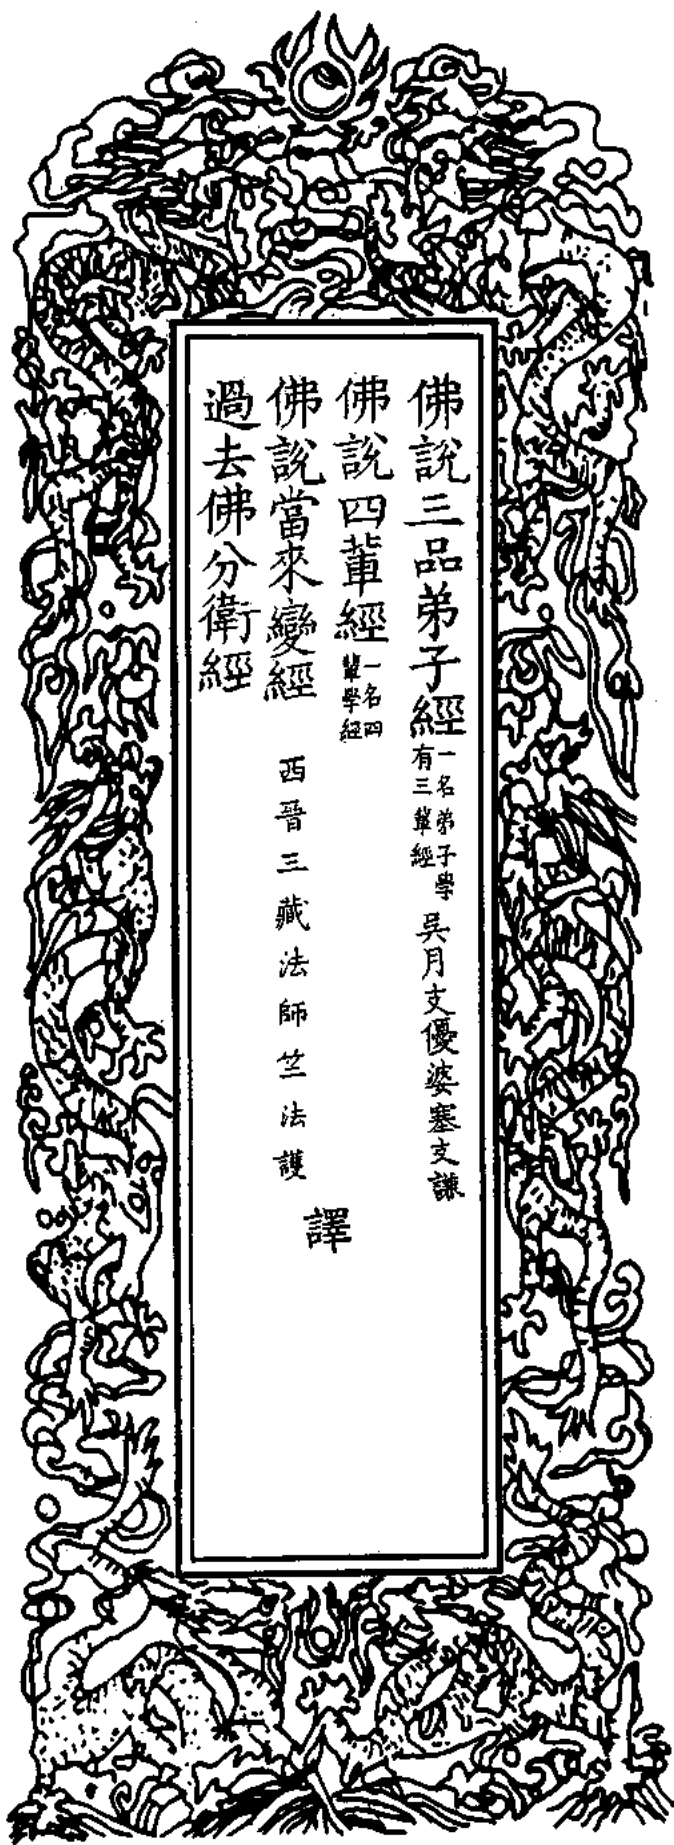 佛說三品弟子經一名弟子學有三輩經 吳月支優婆塞支謙
佛說四輩經一名四輩學經
佛說當來變經 西晉三藏法師竺法護
過去佛分衛經
譯